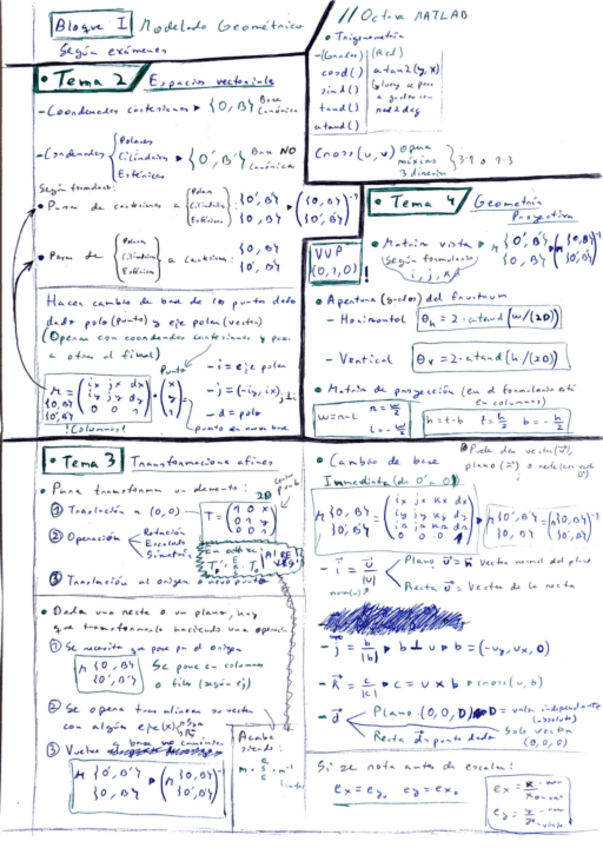 Bloque I Modelado Geométrico
Según exámenes
// Octave MATLAB
• Trigonometría
(Grados) (Rad)
cosd() atan2(y,x)
sind() luego se pasa
tand() a grados con
atand() rad2deg
Cross(u,v) opera
máximo
3 dimension
3·1 o 1·3
• Tema 2 Espacios vectoriales
- Coordenadas cartesianas ▸ {O,B} Base Canónica
- Coordenadas {Polares Cilíndricas Esféricas ▸ {O',B'} Base NO Canónica
Según formulario:
• Pasar de cartesianas a {Polares Cilíndricas Esféricas}: {O',B'} {O,B} ▸ ({O,B} {O',B'})⁻¹
• Pasar de {Polares Cilíndricas Esféricas} a cartesianas: {O,B} {O',B'}
Hacer cambio de base de los puntos dado
dado polo (punto) y eje polar (vector)
(Operar con coordenadas cartesianas y pasar
a otras al final)
Punto
M {O,B} {O',B'} = (ix jx dx iy jy dy 0 0 1) · (x y 1) =
- i = eje polar
- j = (-iy, ix)
- d = polo
punto en nueva base
!Columnas!
• Tema 4 Geometría
Proyectiva
VVP
(0,1,0) !
• Matriz vista ▸ M {O',B'} {O,B} ▸ (M {O,B} {O',B'})⁻¹
(según formulario
i, j, k, d)
• Apertura (grados) del frustum
- Horizontal θh = 2·atand(w/(2D))
- Vertical θv = 2·atand(h/(2D))
• Matriz de proyección (en el formulario está
en columnas)
w=r-l r = w/2 l = -w/2
h=t-b t = h/2 b = -h/2
• Tema 3 Transformaciones afines
• Para transformar un elemento: 2D
① Translación a (0,0) T = (1 0 x 0 1 y 0 0 1)
② Operación Rotación
Escalado
Simetría
¡AL REVÉS!
③ Translación al origen o nuevo punto
• Dada una recta o un plano, hay
que transformarlo haciendo una operación
① Se necesita que pase por el origen
M {O,B} {O',B'} Se pone en columnas
o filas (según ej)
② Se opera tras alinear su vector
con algún eje (x)
③ Vuelve
M {O',B'} {O,B} ▸ (M {O,B} {O',B'})⁻¹
Acaba
siendo:
• Cambio de base
Inmediata (de O' a O)
M {O,B} {O',B'} = (ix jx kx dx iy jy ky dy iz jz kz dz 0 0 0 1) ▸ M {O',B'} {O,B} = (M {O,B} {O',B'})⁻¹
- i = u/|u| Plano u = n Vector normal del plano
Recta u = Vector de la recta
- j = b/|b| ▸ b ⊥ u ▸ b = (-uy, ux, 0)
- k = c/|c| ▸ c = u × b ▸ cross(u,b)
- d Plano (0,0,D) D = valor independiente
(absoluto)
Recta ▸ punto dado Solo vector
(0,0,0)
Si se rota antes de escalar:
ex = ey₀ ey = ex₀